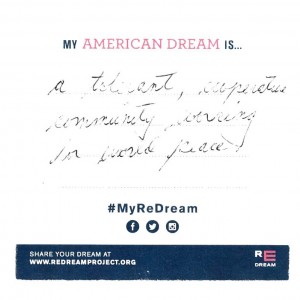 MY AMERICAN DREAM IS...
a tolerant, cooperative
community
in world peace
#MyReDream
SHARE YOUR DREAM AT
WWW.REDREAMPROJECT.ORG
RE
DREAM